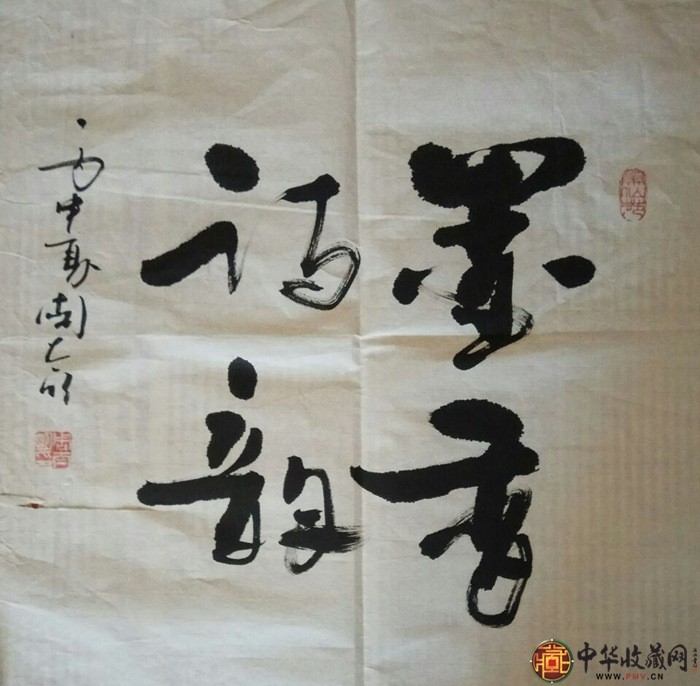 墨香
诗韵
丙申夏周大明
中华收藏网
WWW.PMV.CN